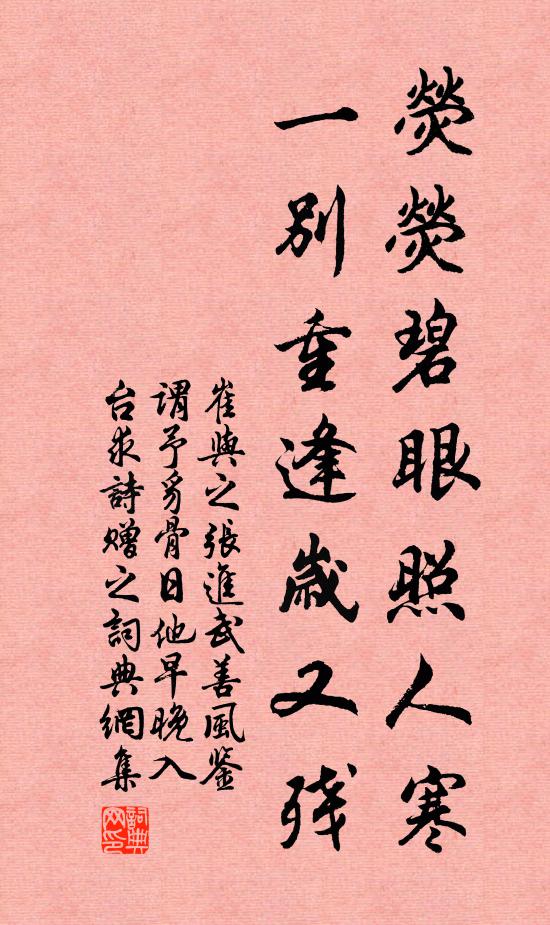 熒熒碧眼照人寒
一別重逢歲又殘
崔與之張進武善風鑒
謂予豸骨日他早晚入
台求詩贈之詞典網集
詞典
网印